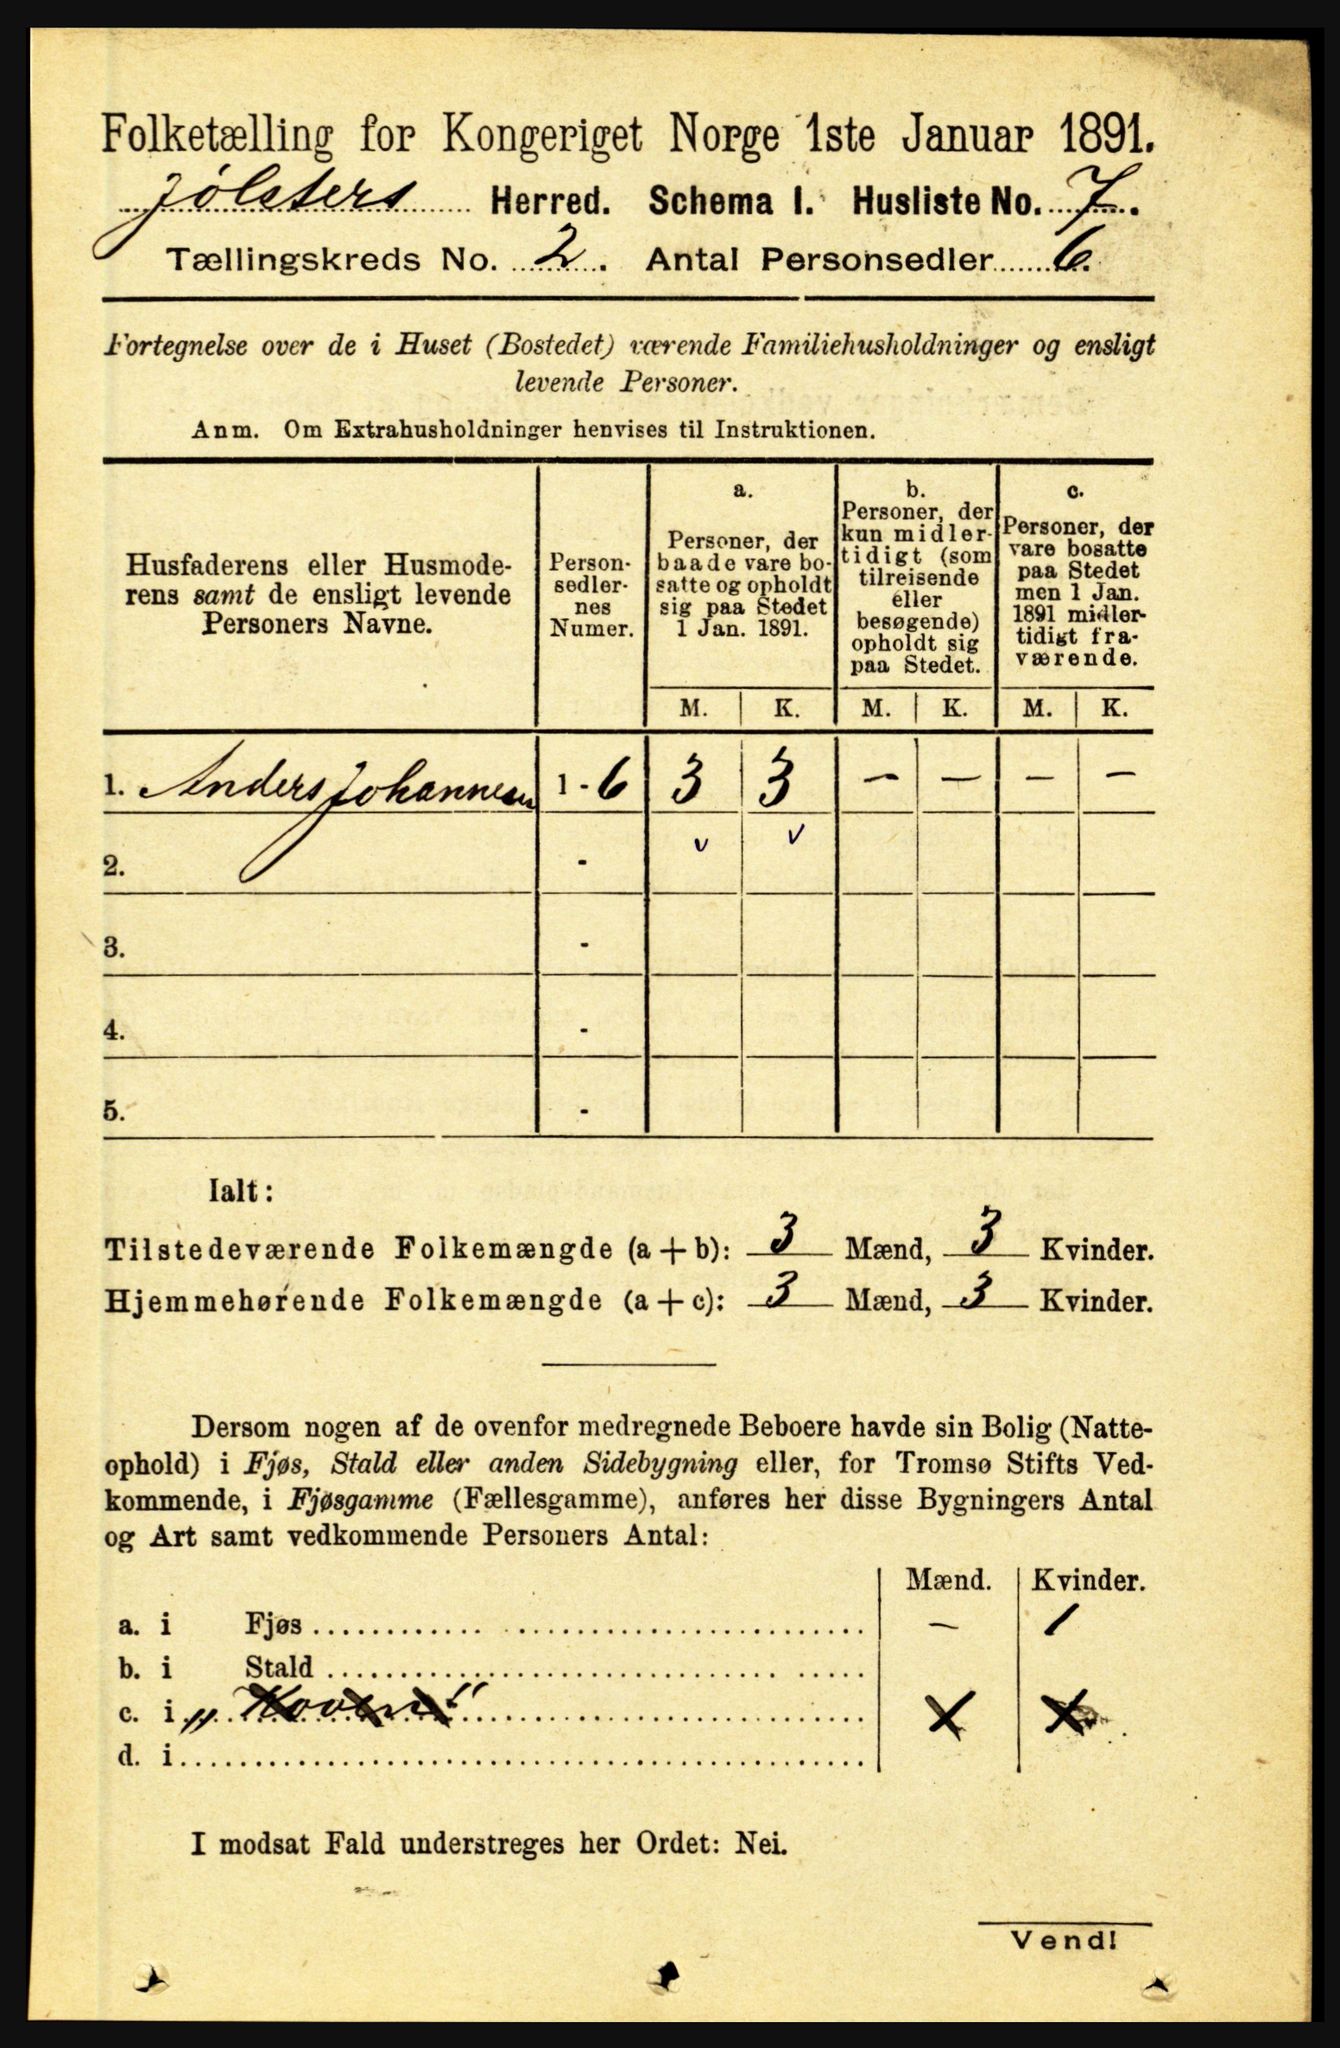 Folketælling for Kongeriget Norge 1ste Januar 1891.
Jølsters Herred. Schema I. Husliste No. 7.
Tællingskreds No. 2. Antal Personsedler 6.
Fortegnelse over de i Huset (Bostedet) værende Familiehusholdninger og ensligt
levende Personer.
Anm. Om Extrahusholdninger henvises til Instruktionen.
Husfaderens eller Husmode-
rens samt de ensligt levende
Personers Navne.
Person-
sedler-
nes
Numer.
a.
Personer, der
baade vare bo-
satte og opholdt
sig paa Stedet
1 Jan. 1891.
b.
Personer, der
kun midler-
tidigt (som
tilreisende
eller
besøgende)
opholdt sig
paa Stedet.
c.
Personer, der
vare bosatte
paa Stedet
men 1 Jan.
1891 midler-
tidigt fra-
værende.
M. K. M. K. M. K.
1. Anders Johannesen 1 - 6 3 3 - - - -
2. - v v
3. -
4. -
5. -
Ialt:
Tilstedeværende Folkemængde (a + b): 3 Mænd, 3 Kvinder.
Hjemmehørende Folkemængde (a + c): 3 Mænd, 3 Kvinder.
Dersom nogen af de ovenfor medregnede Beboere havde sin Bolig (Natte-
ophold) i Fjøs, Stald eller anden Sidebygning eller, for Tromsø Stifts Ved-
kommende, i Fjøsgamme (Fællesgamme), anføres her disse Bygningers Antal
og Art samt vedkommende Personers Antal:
Mænd. Kvinder.
a. i Fjøs - 1
b. i Stald
c. i
d. i
I modsat Fald understreges her Ordet: Nei.
Vend!